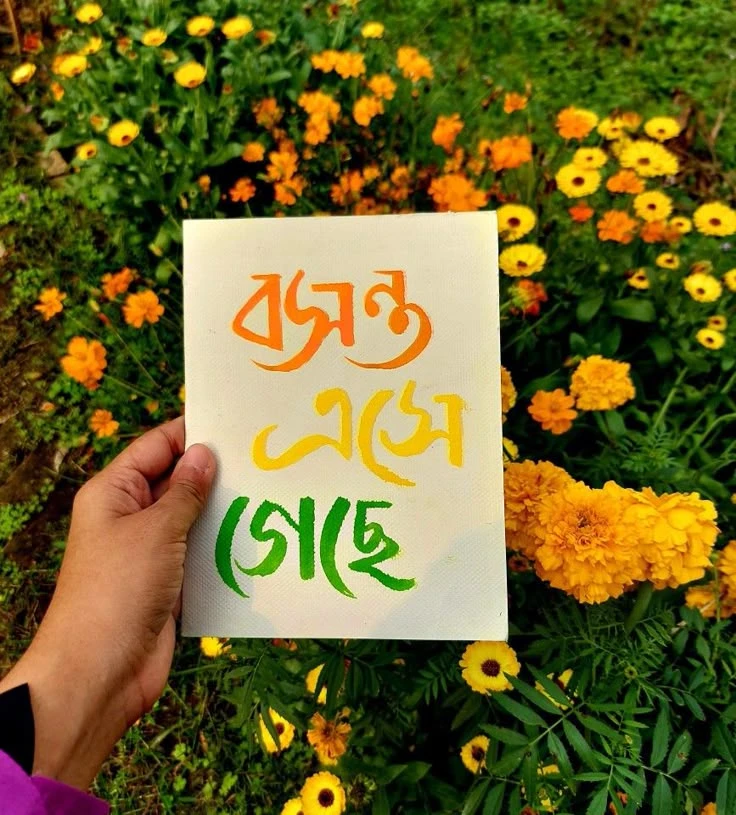 বসন্ত
এসে
গেছে